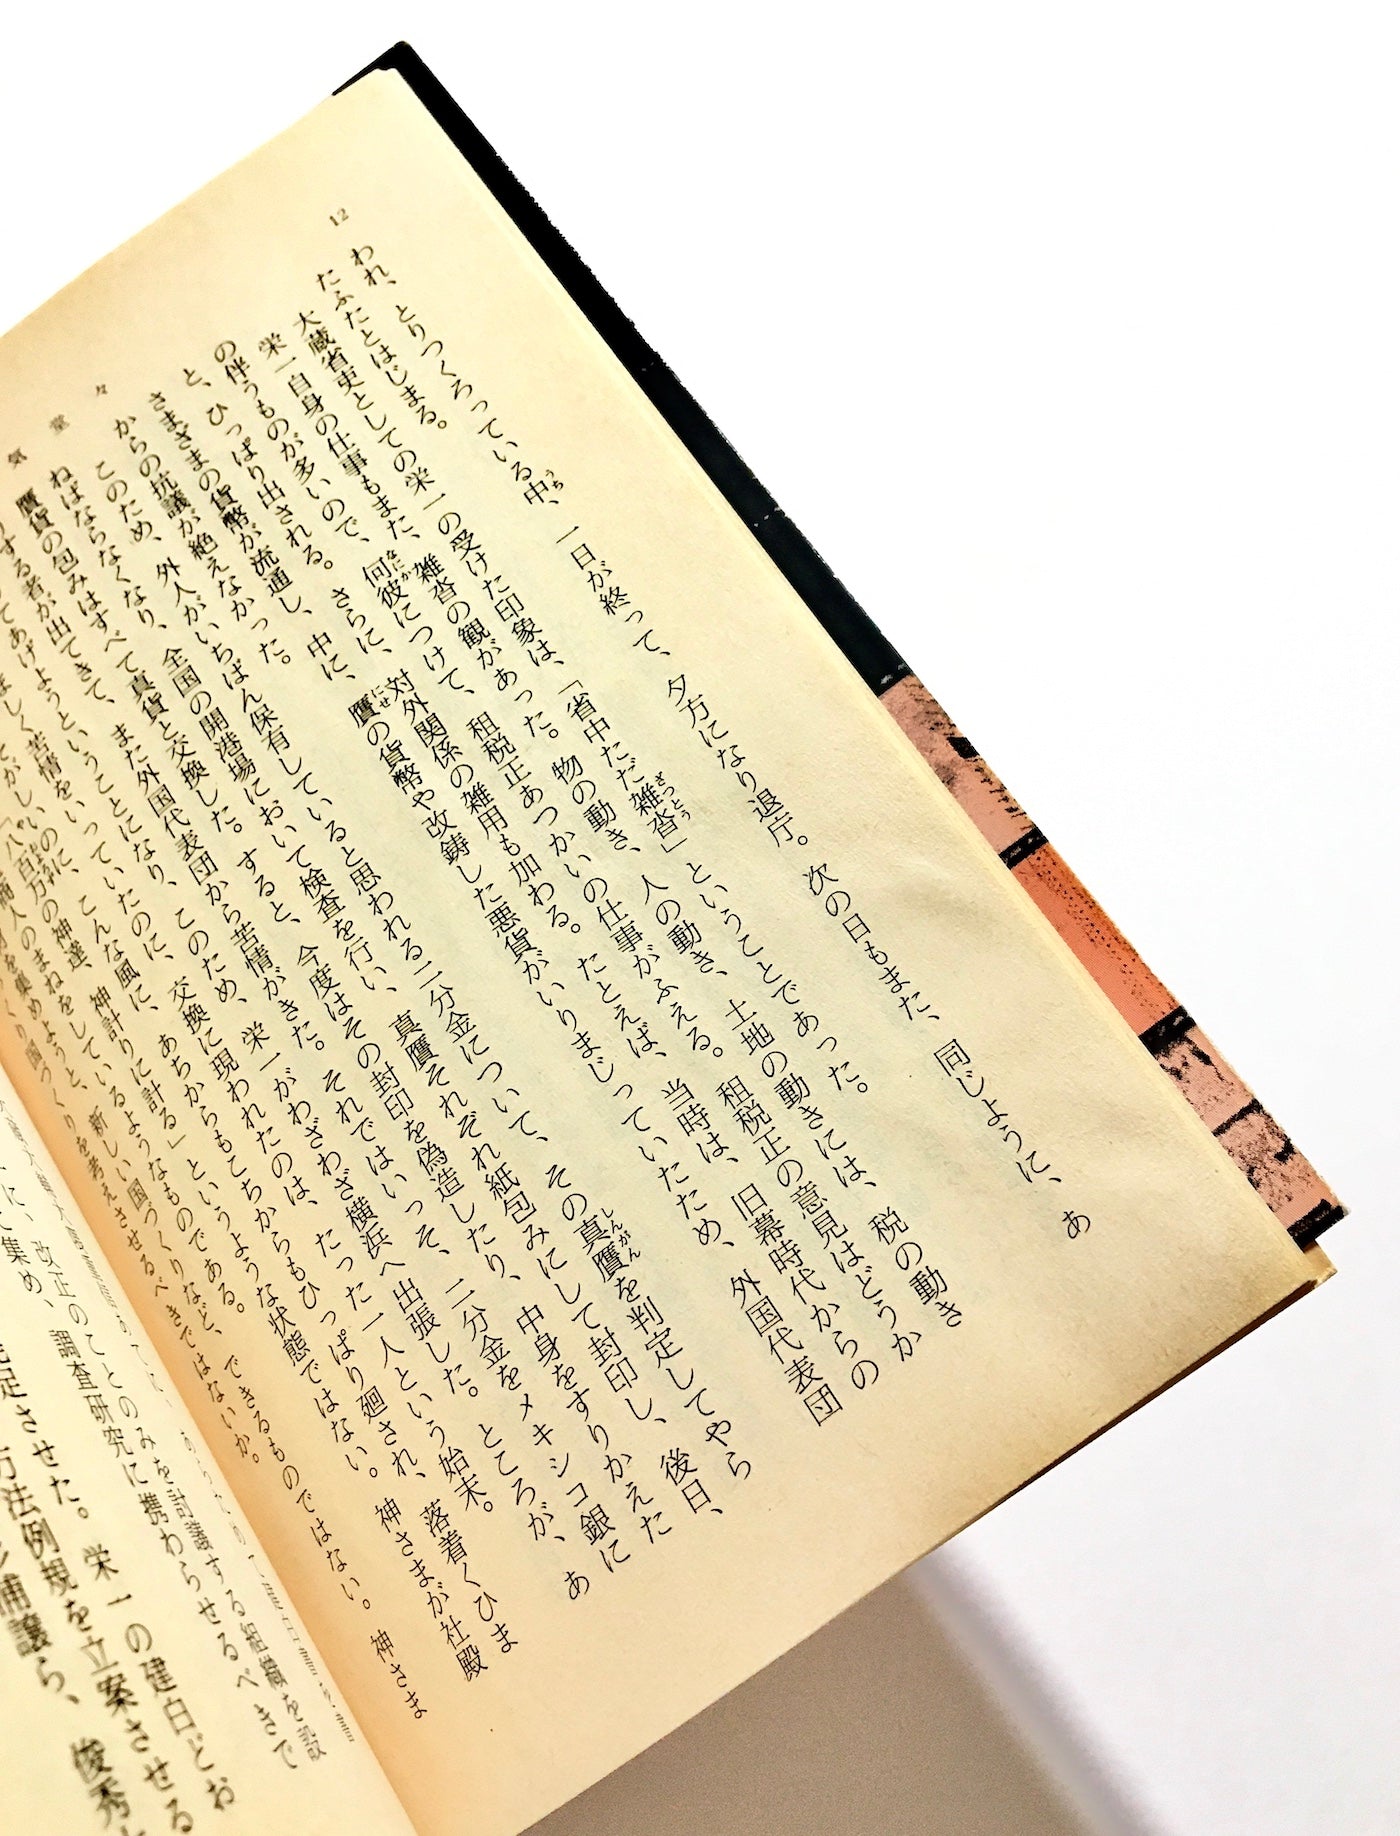 12
々堂気
われ、とりつくろっている中、一日が終って、夕方になり退庁。次の日もまた、同じように、あ
たふたとはじまる。
大蔵省吏としての栄一の受けた印象は、「省中ただ雑沓」ということであった。
栄一自身の仕事もまた、雑沓の観があった。物の動き、人の動き、土地の動きには、税の動き
の伴うものが多いので、何彼につけて、租税正あつかいの仕事がふえる。租税正の意見はどうか
と、ひっぱり出される。さらに、対外関係の雑用も加わる。たとえば、当時は、旧幕時代からの
さまざまの貨幣が流通し、中に、贋の貨幣や改鋳した悪貨がいりまじっていたため、外国代表団
からの抗議が絶えなかった。
このため、外人がいちばん保有していると思われる二分金について、その真贋を判定してやら
ねばならなくなり、全国の開港場において検査を行い、真贋それぞれ紙包みにして封印し、後日、
贋貨の包みはすべて真貨と交換した。すると、今度はその封印を偽造したり、中身をすりかえた
りする者が出てきて、また外国代表団から苦情がきた。それではいっそ、二分金をメキシコ銀に
てあげようということになり、このため、栄一がわざわざ横浜へ出張した。ところが、あ
しく苦情をいっていたのに、交換に現われたのは、たった一人という始末。
がしいのに、こんな風に、あちからもこちからもひっぱり廻され、落着くひま
「八百万の神達、神計りに計る」というような状態ではない。神さまが社殿
人のまねをしているようなものである。できるものではない。神さま
を集めようと、新しい国つくりなど、
国つくりを考えさせるべきではないか。
に、改正のことのみを討議する組織を設
て集め、調査研究に携わらせるべきで
足させた。栄一の建白どお
方法例規を立案させる
浦譲ら、俊秀